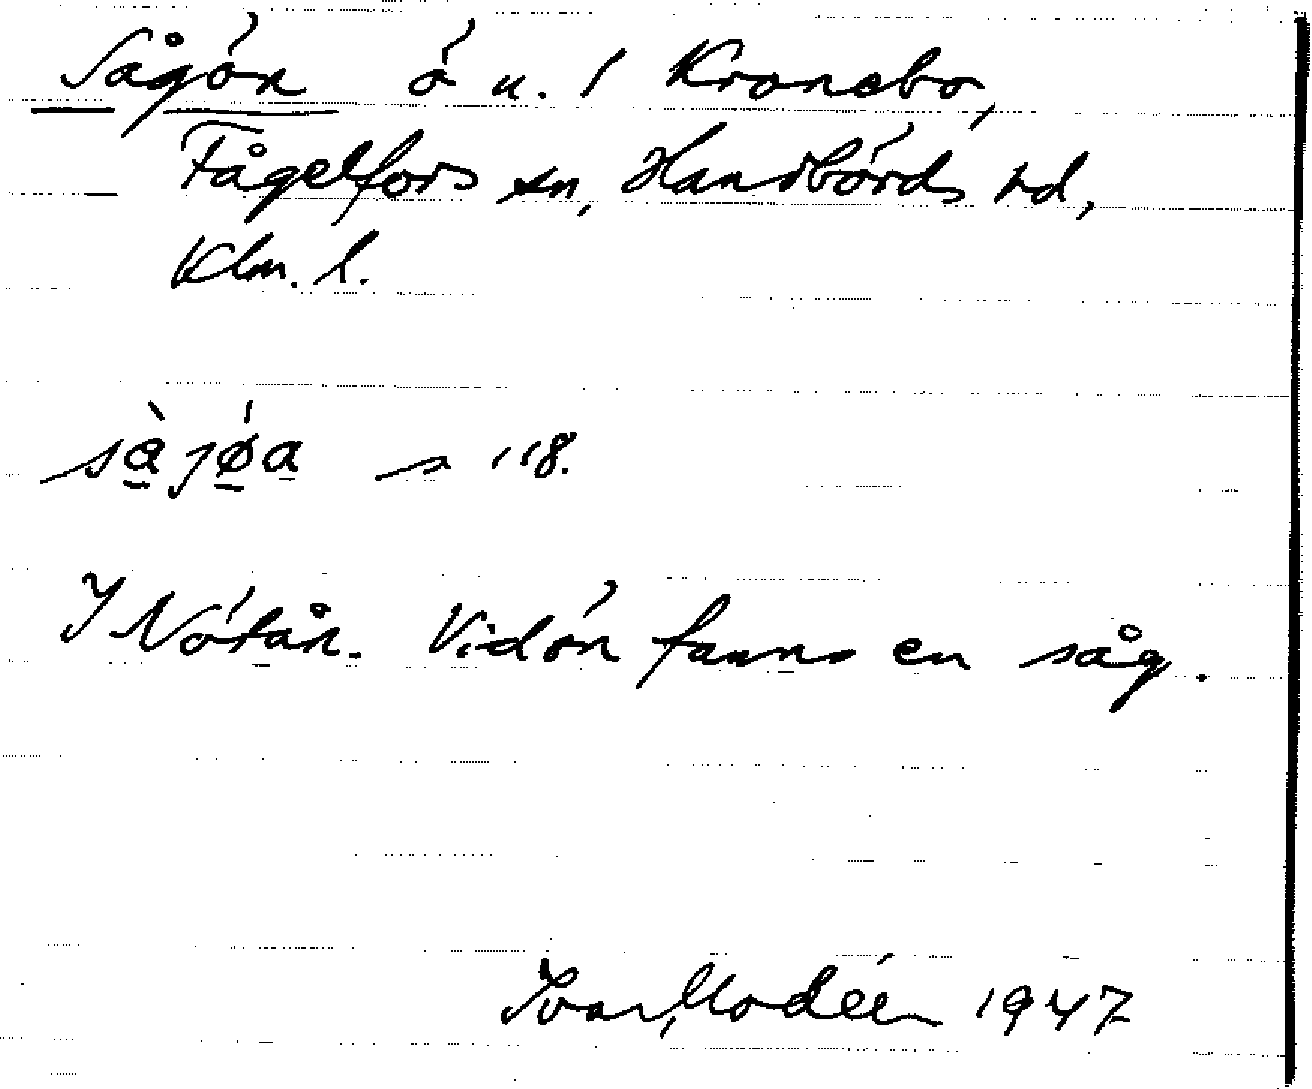 Sågön ö u. / Kronebo,
Fågelfors sn, Handbörds hd,
Klm. l.
sà̱jǿ̱a̱ s 118.
I Nötån. Vid ön fanns en såg.
Ivar Modéer 1947